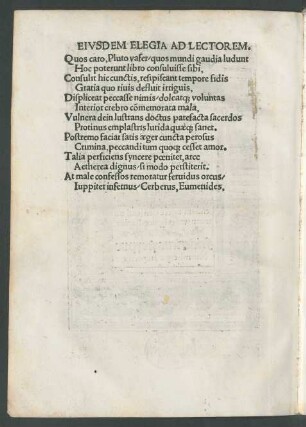 EIVSDEM ELEGIA AD LECTOREM.
Quos caro, Pluto vafer/quos mundi gaudia ludunt
Hoc poterunt libro consuluisse sibi,
Consulit hic cunctis, resipiscant tempore fidis
Gratia quo riuis defluit irriguis,
Displiceat peccasse nimis/doleatq; voluntas
Interior crebro cōmemorata mala,
Vulnera dein lustrans doctus patefacta sacerdos
Protinus emplastris lurida quæq; sanet.
Postremo faciat satis æger cuncta perosus
Crimina, peccandi tum quoq; cesset amor.
Talia perficiens syncere pœnitet, arce
Aetherea dignus/si modo perstiterit.
At male confessos remoratur feruidus orcus/
Iuppitet infernus/Cerberus, Eumenides.